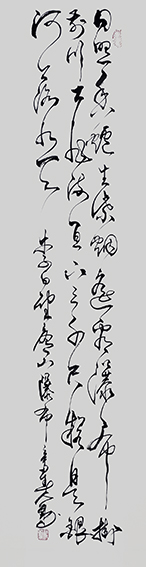 日照香爐生紫烟遥看瀑布掛
前川飛流直下三千尺疑是銀
河落九天 李白望廬山瀑布